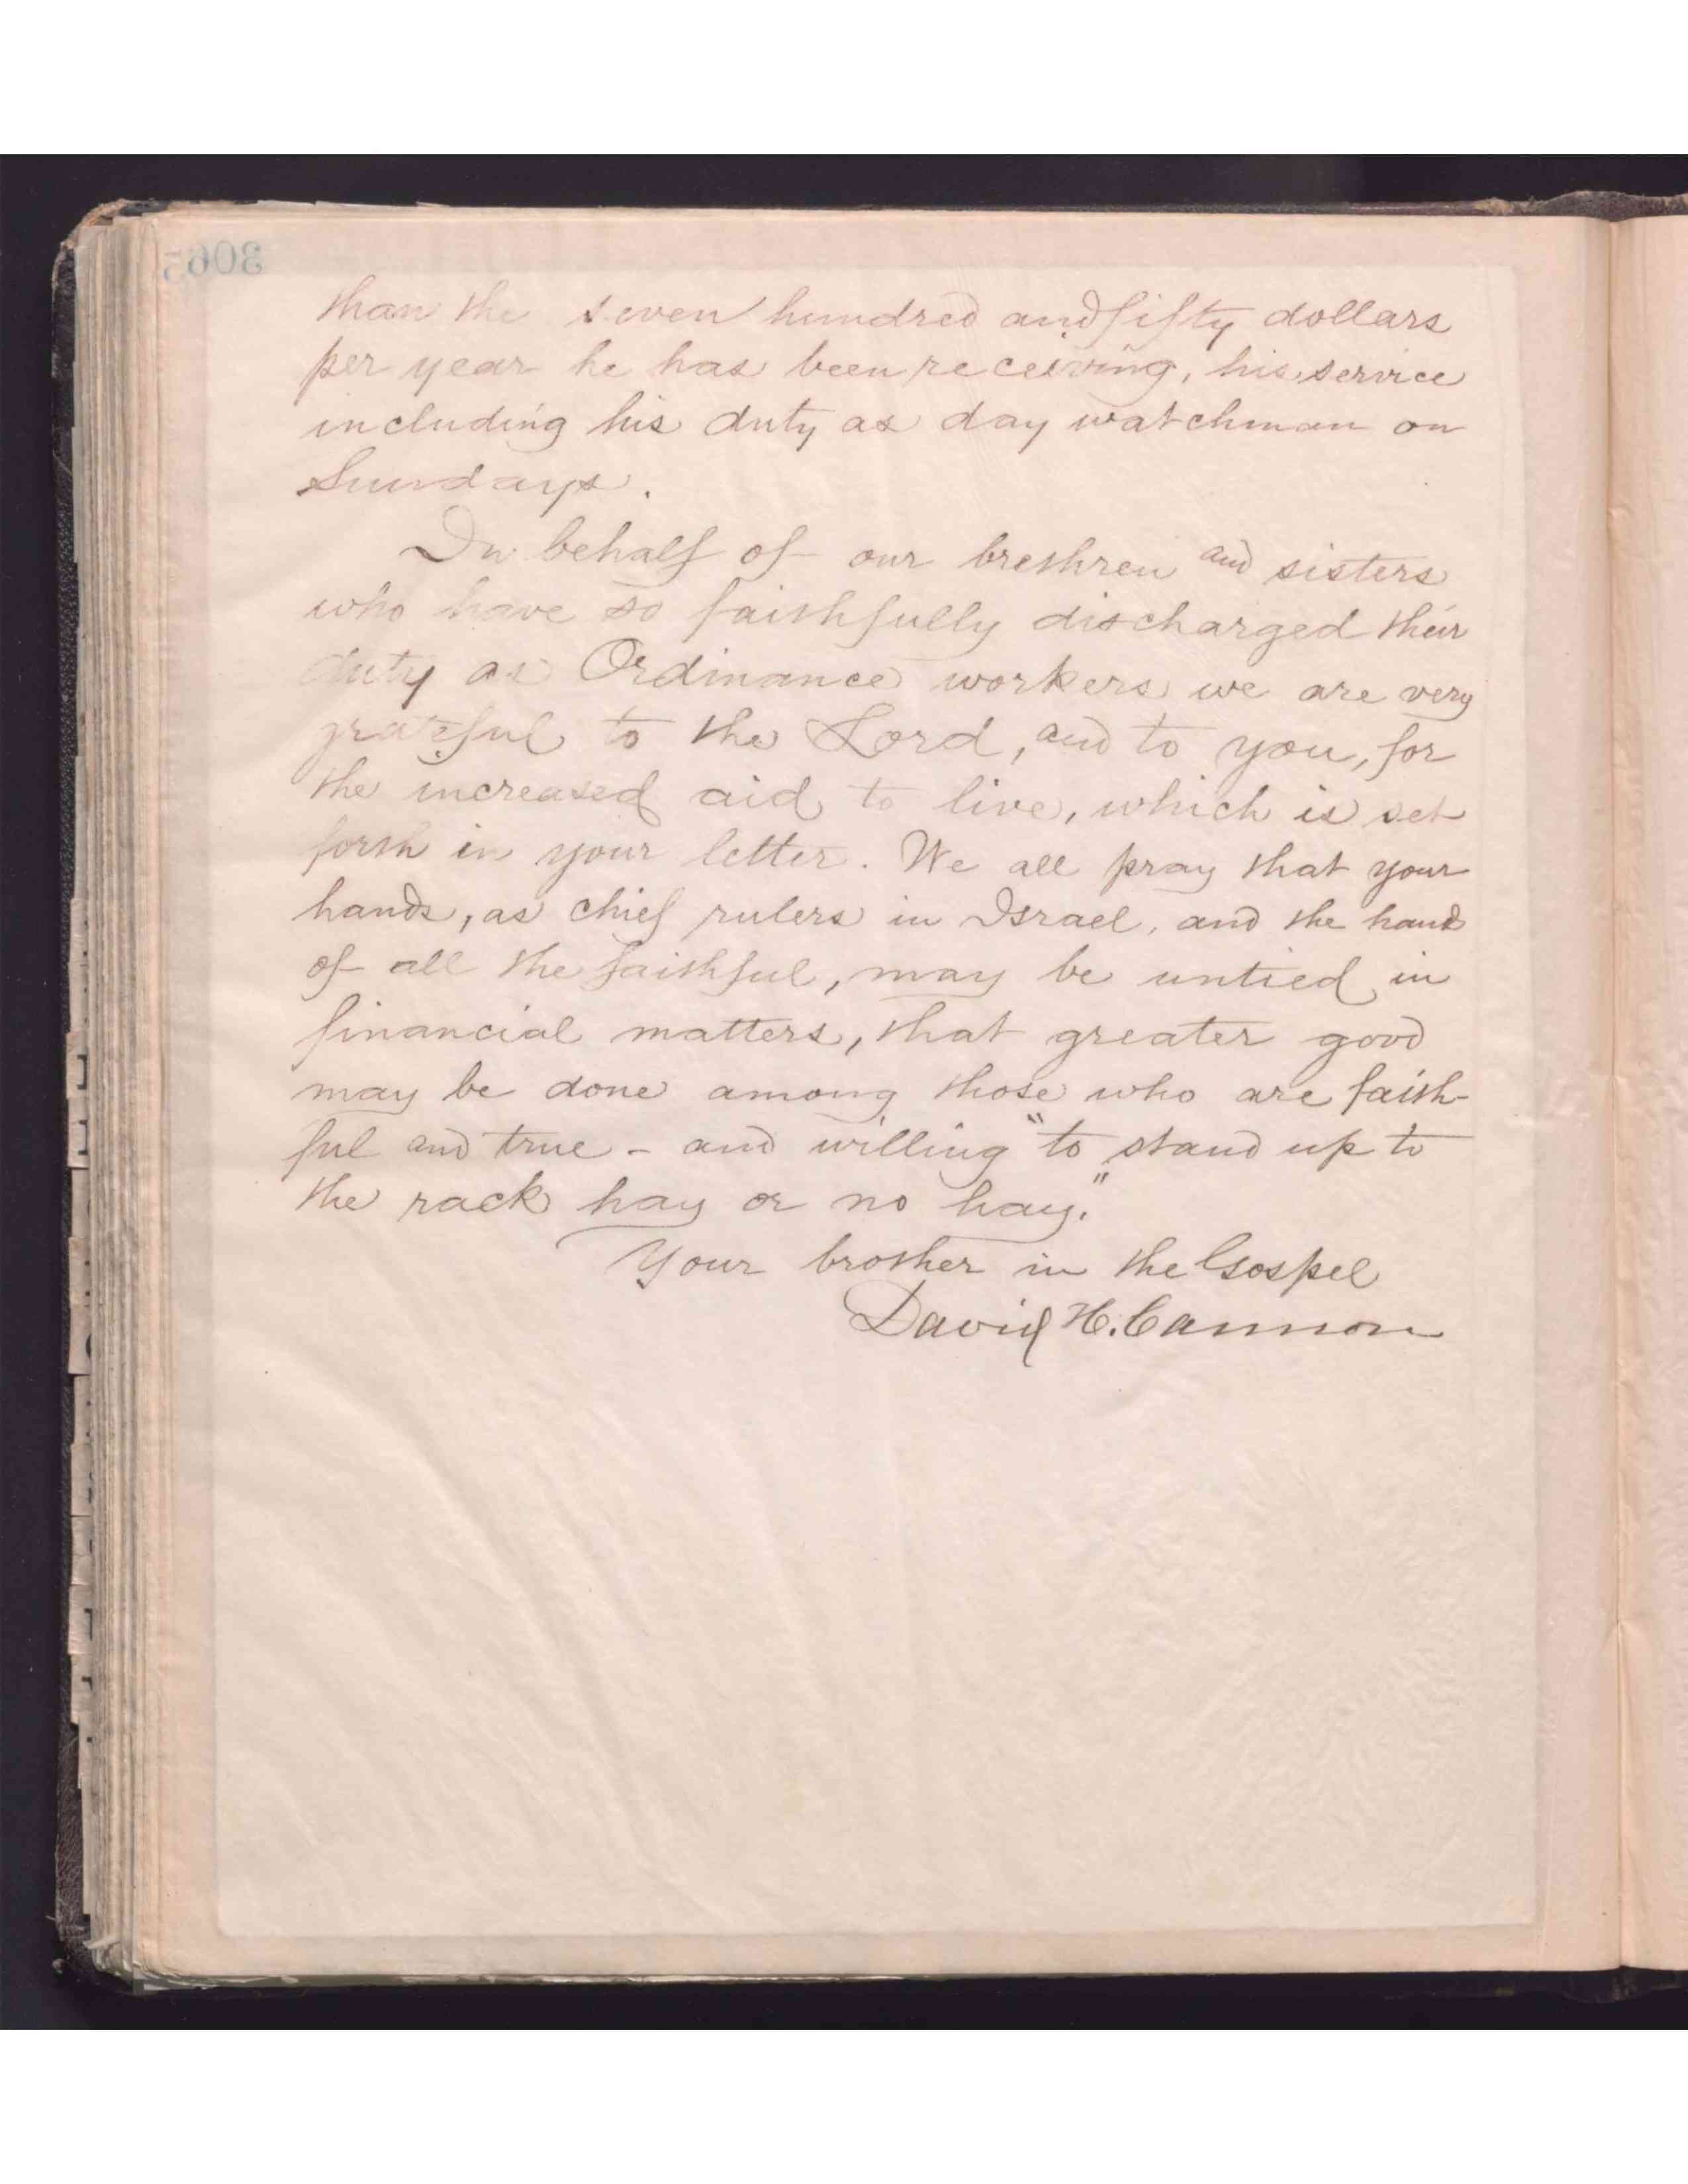 than the seven hundred and fifty dollars
per year he has been receiving, his service
including his duty as day watchman on
Sundays.
In behalf of our brethren and sisters
who have so faithfully discharged their
duty as Ordinance workers we are very
grateful to the Lord, and to you, for
the increased aid to live, which is set
forth in your letter. We all pray that your
hands, as chief rulers in Israel, and the hands
of all the faithful, may be untied in
financial matters, that greater good
may be done among those who are faith-
ful and true - and willing "to stand up to
the rack hay or no hay."
Your brother in the Gospel
David H. Cannon